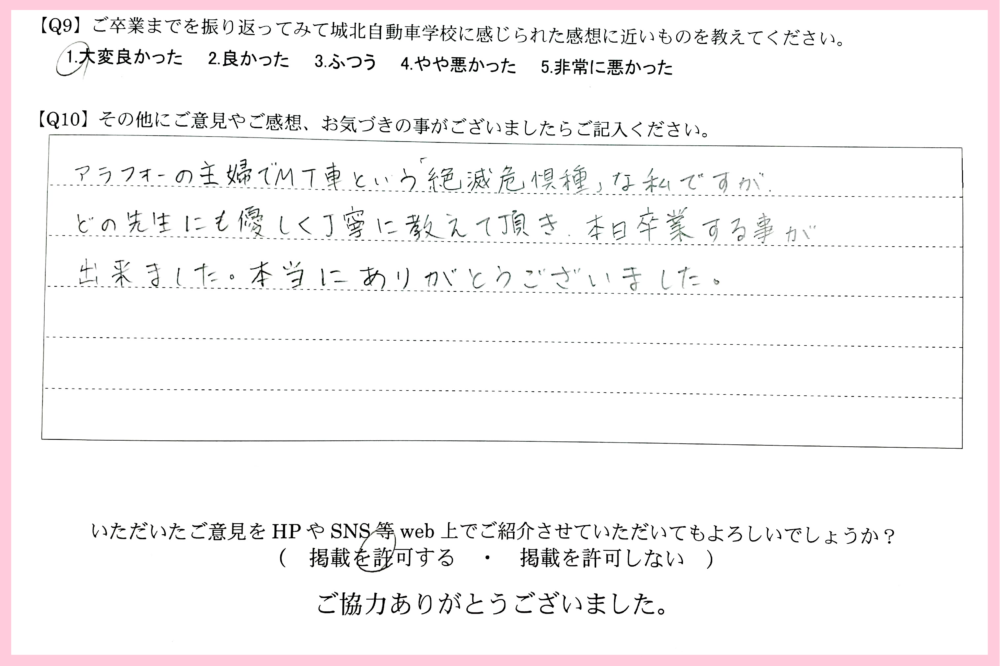 【Q9】ご卒業までを振り返ってみて城北自動車学校に感じられた感想に近いものを教えてください。
1.大変良かった 2.良かった 3.ふつう 4.やや悪かった 5.非常に悪かった
【Q10】その他にご意見やご感想、お気づきの事がございましたらご記入ください。
アラフォーの主婦でMT車という「絶滅危惧種」な私ですが、
どの先生にも優しく丁寧に教えて頂き、本日卒業する事が
出来ました。本当にありがとうございました。
いただいたご意見をHPやSNS等web上でご紹介させていただいてもよろしいでしょうか？
（ 掲載を許可する ・ 掲載を許可しない ）
ご協力ありがとうございました。